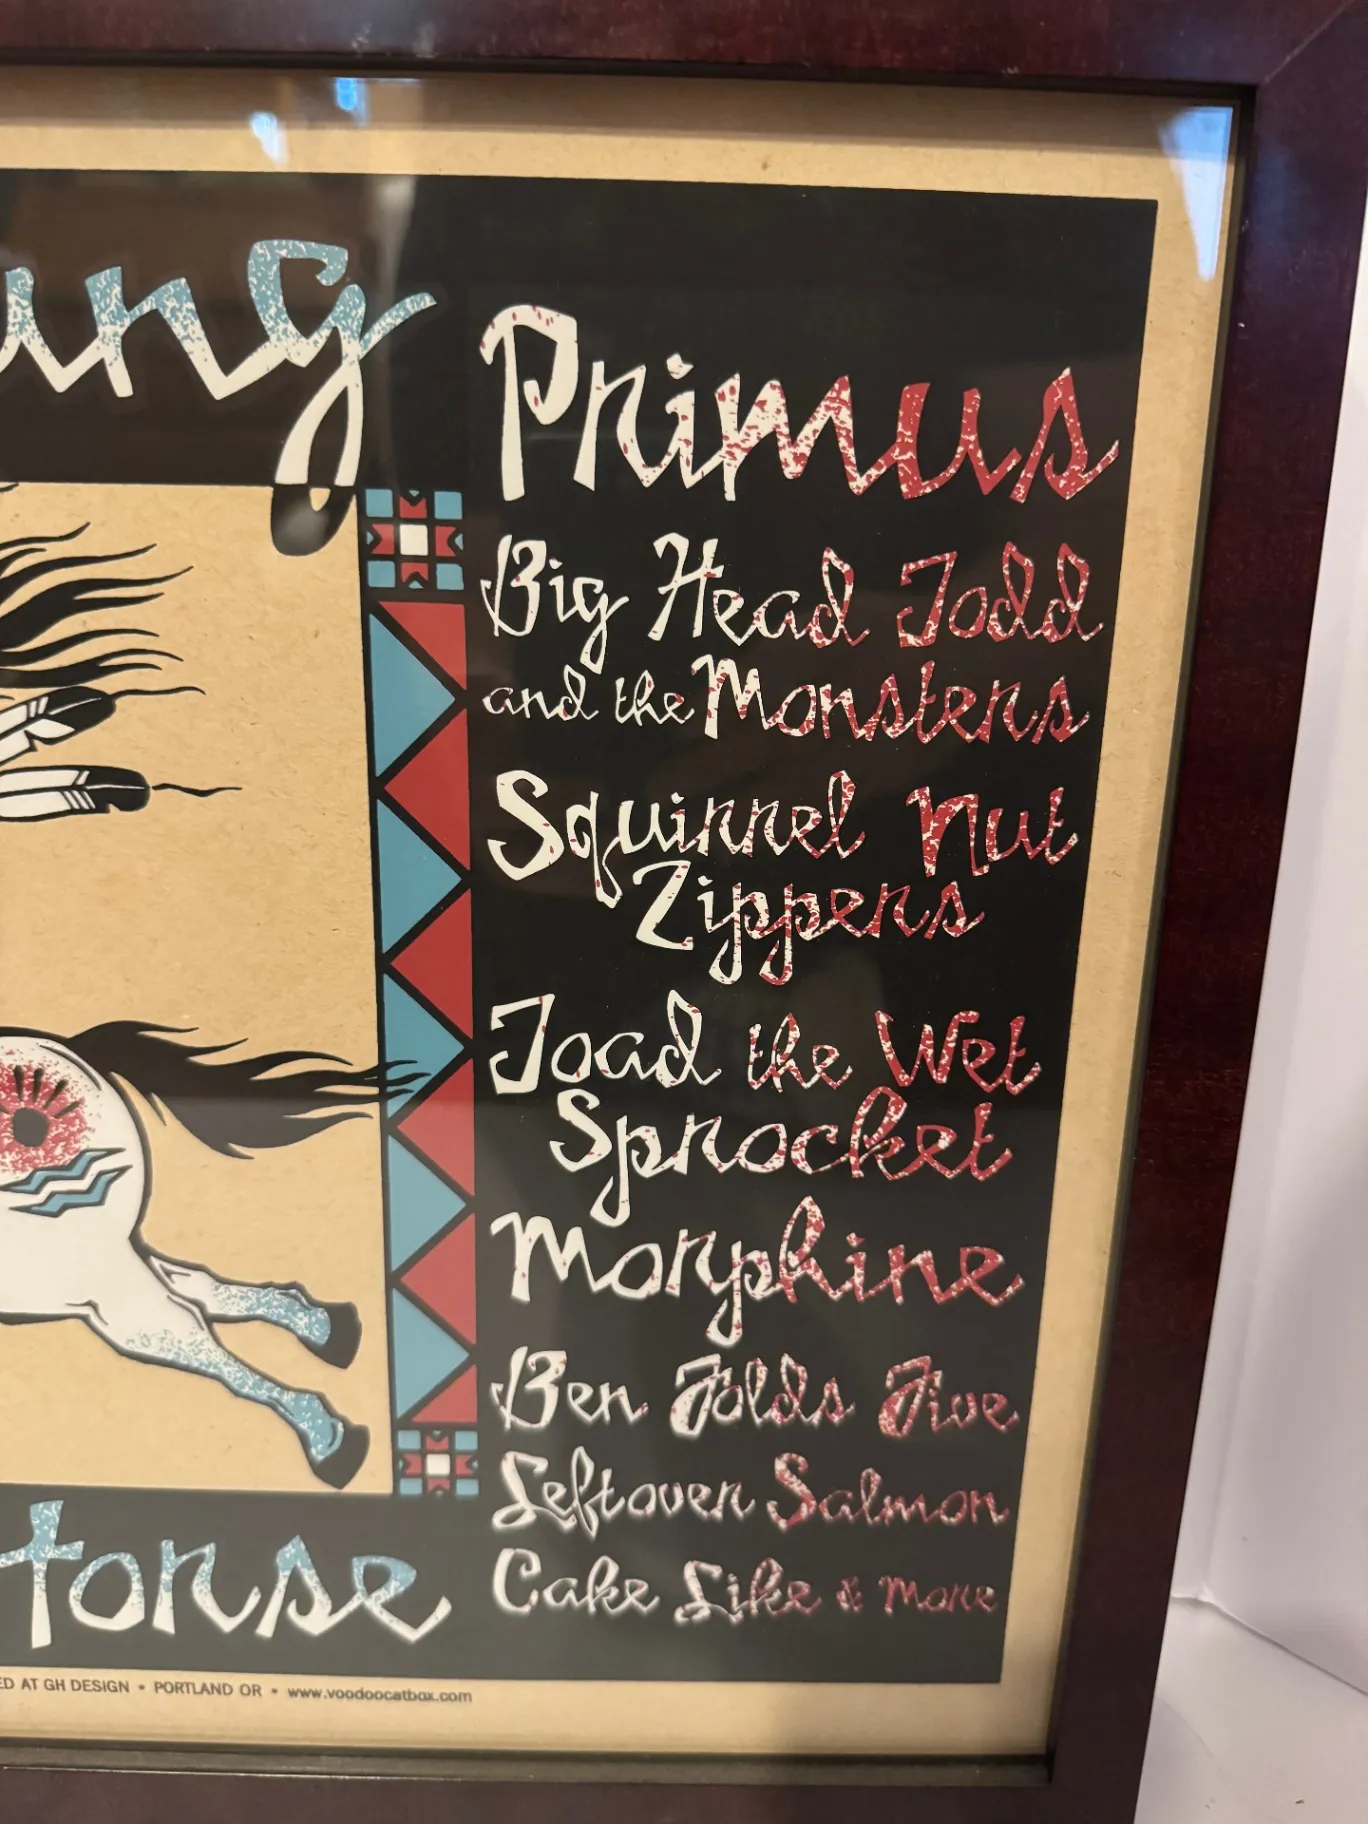 ung
Primus
Big Head Todd
and the Monsters
Squirrel Nut
Zippers
Toad the Wet
Sprocket
Morphine
Ben Folds Five
Leftover Salmon
Cake Like & More
orse
ED AT GH DESIGN • PORTLAND OR • www.voodoocatbox.com